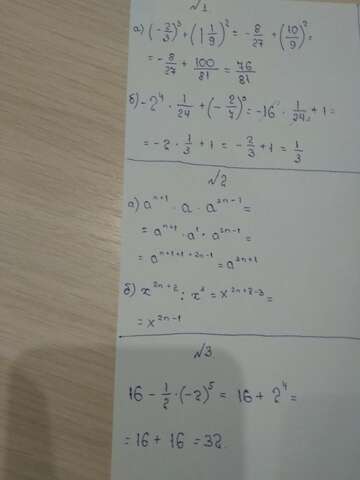 №1
а) (-2/3)³ + (1 1/9)² = -8/27 + (10/9)² =
= -8/27 + 100/81 = 76/81
б) -2⁴ · 1/24 + (-2/7)⁰ = -16 · 1/24 + 1 =
= -2 · 1/3 + 1 = -2/3 + 1 = 1/3
№2
а) aⁿ⁺¹ · a · a²ⁿ⁻¹ =
= aⁿ⁺¹ · a¹ · a²ⁿ⁻¹ =
= aⁿ⁺¹⁺¹⁺²ⁿ⁻¹ = a³ⁿ⁺¹
б) x²ⁿ⁺² : x³ = x²ⁿ⁺²⁻³ =
= x²ⁿ⁻¹
№3
16 - 1/2 · (-2)⁵ = 16 + 2⁴ =
= 16 + 16 = 32